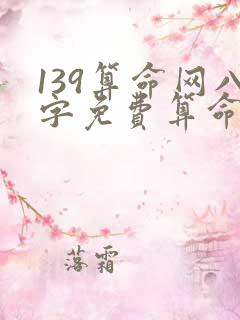 139算命网八
字免费算命
落霜